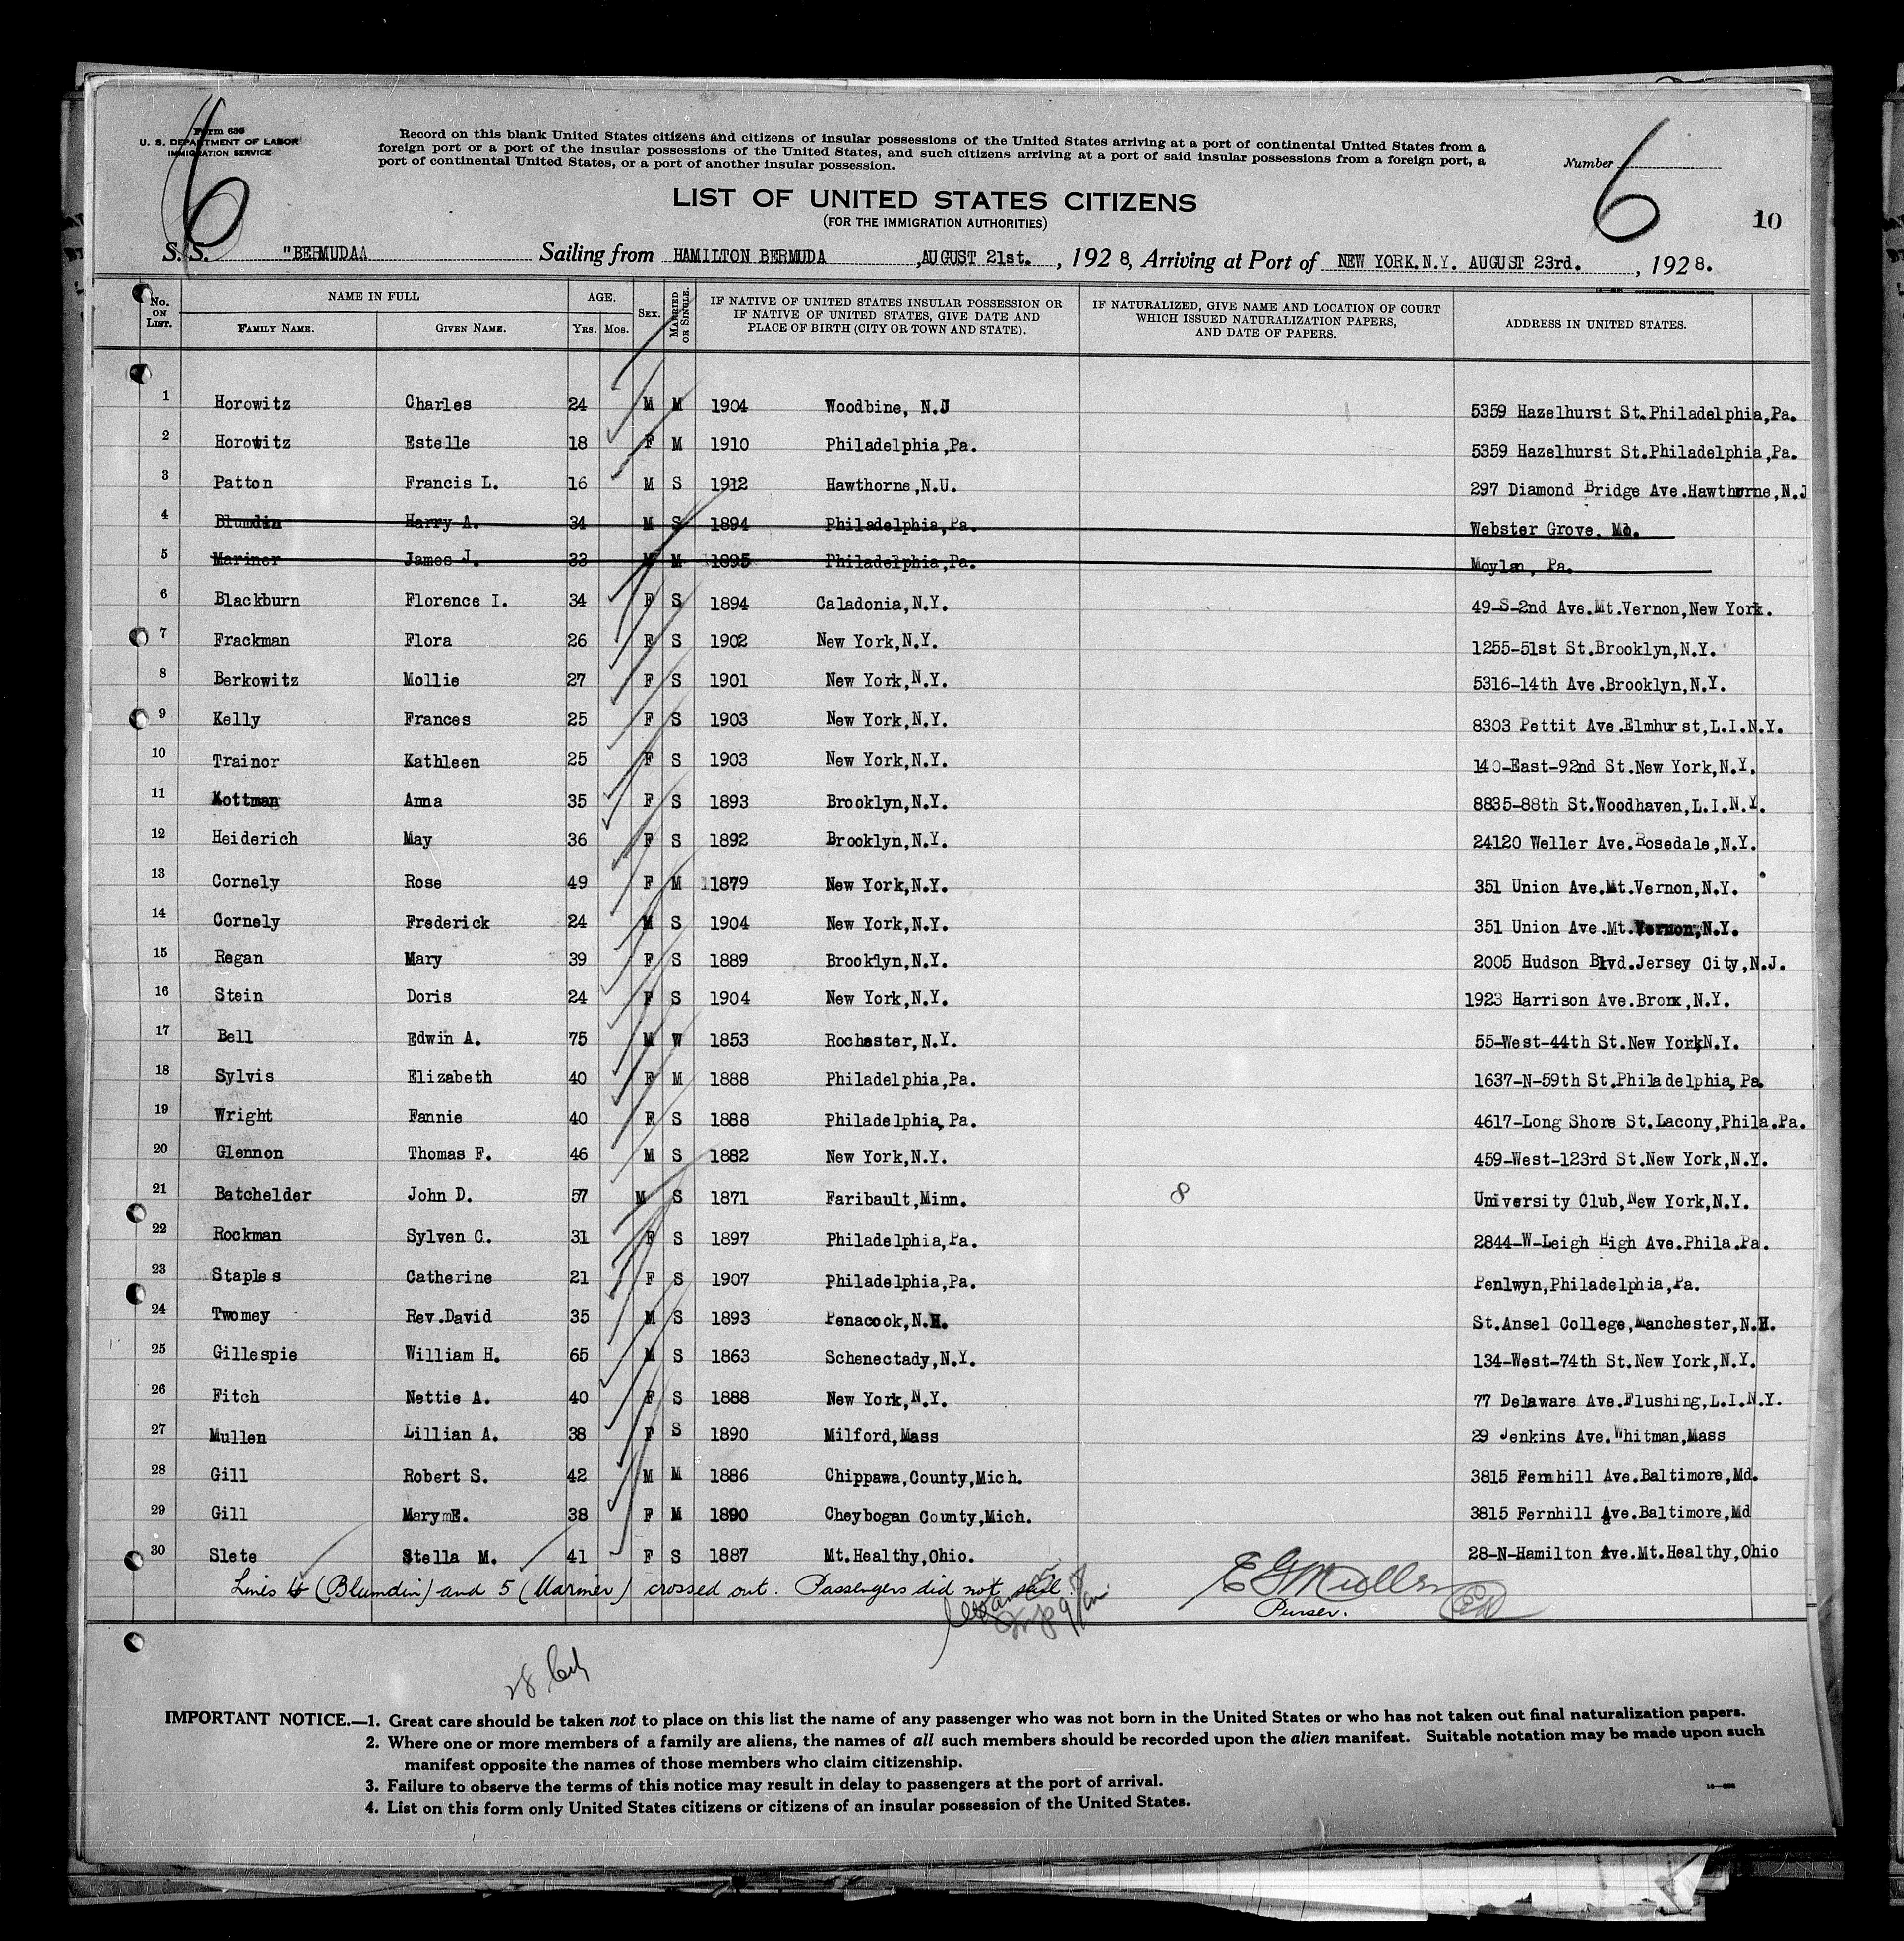 Form 630
U. S. DEPARTMENT OF LABOR
IMMIGRATION SERVICE
6
Record on this blank United States citizens and citizens of insular possessions of the United States arriving at a port of continental United States from a
foreign port or a port of the insular possessions of the United States, and such citizens arriving at a port of said insular possessions from a foreign port, a
port of continental United States, or a port of another insular possession.
Number 6
LIST OF UNITED STATES CITIZENS
(FOR THE IMMIGRATION AUTHORITIES)
10
S. S. "BERMUDA Sailing from HAMILTON BERMUDA ,AUGUST 21st. , 1928, Arriving at Port of NEW YORK.N.Y. AUGUST 23rd. , 1928.
No. ON LIST. NAME IN FULL FAMILY NAME. GIVEN NAME. AGE. YRS. MOS. SEX. MARRIED OR SINGLE. IF NATIVE OF UNITED STATES INSULAR POSSESSION OR IF NATIVE OF UNITED STATES, GIVE DATE AND PLACE OF BIRTH (CITY OR TOWN AND STATE). IF NATURALIZED, GIVE NAME AND LOCATION OF COURT WHICH ISSUED NATURALIZATION PAPERS, AND DATE OF PAPERS. ADDRESS IN UNITED STATES.
1 Horowitz Charles 24 M M 1904 Woodbine, N.J 5359 Hazelhurst St.Philadelphia,Pa.
2 Horowitz Estelle 18 F M 1910 Philadelphia,Pa. 5359 Hazelhurst St.Philadelphia,Pa.
3 Patton Francis L. 16 M S 1912 Hawthorne,N.U. 297 Diamond Bridge Ave.Hawthorne,N.J
4 Blumdin Harry A. 34 M S 1894 Philadelphia,Pa. Webster Grove. Mo.
5 Mariner James J. 33 M M 1895 Philadelphia,Pa. Moylan, Pa.
6 Blackburn Florence I. 34 F S 1894 Caladonia,N.Y. 49-S-2nd Ave.Mt.Vernon,New York.
7 Frackman Flora 26 F S 1902 New York,N.Y. 1255-51st St.Brooklyn,N.Y.
8 Berkowitz Mollie 27 F S 1901 New York,N.Y. 5316-14th Ave.Brooklyn,N.Y.
9 Kelly Frances 25 F S 1903 New York,N.Y. 8303 Pettit Ave.Elmhurst,L.I.N.Y.
10 Trainor Kathleen 25 F S 1903 New York,N.Y. 140-East-92nd St.New York,N.Y.
11 Kottman Anna 35 F S 1893 Brooklyn,N.Y. 8835-88th St.Woodhaven,L.I.N.Y.
12 Heiderich May 36 F S 1892 Brooklyn,N.Y. 24120 Weller Ave.Rosedale,N.Y.
13 Cornely Rose 49 F M 1879 New York,N.Y. 351 Union Ave.Mt.Vernon,N.Y.
14 Cornely Frederick 24 M S 1904 New York,N.Y. 351 Union Ave.Mt.Vernon,N.Y.
15 Regan Mary 39 F S 1889 Brooklyn,N.Y. 2005 Hudson Blvd.Jersey City,N.J.
16 Stein Doris 24 F S 1904 New York,N.Y. 1923 Harrison Ave.Bronx,N.Y.
17 Bell Edwin A. 75 M W 1853 Rochester,N.Y. 55-West-44th St.New York,N.Y.
18 Sylvis Elizabeth 40 F M 1888 Philadelphia,Pa. 1637-N-59th St.Philadelphia,Pa
19 Wright Fannie 40 F S 1888 Philadelphia,Pa. 4617-Long Shore St.Lacony,Phila.Pa.
20 Glennon Thomas F. 46 M S 1882 New York,N.Y. 459-West-123rd St.New York,N.Y.
21 Batchelder John D. 57 M S 1871 Faribault,Minn. 8 University Club,New York,N.Y.
22 Rockman Sylven C. 31 F S 1897 Philadelphia,Pa. 2844-W-Leigh High Ave.Phila.Pa.
23 Staples Catherine 21 F S 1907 Philadelphia,Pa. Penlwyn,Philadelphia,Pa.
24 Twomey Rev.David 35 M S 1893 Penacook,N.H. St.Ansel College,Manchester,N.H.
25 Gillespie William H. 65 M S 1863 Schenectady,N.Y. 134-West-74th St.New York,N.Y.
26 Fitch Nettie A. 40 F S 1888 New York,N.Y. 77 Delaware Ave.Flushing,L.I.N.Y.
27 Mullen Lillian A. 38 F S 1890 Milford,Mass 29 Jenkins Ave.Whitman,Mass
28 Gill Robert S. 42 M M 1886 Chippawa,County,Mich. 3815 Fernhill Ave.Baltimore,Md.
29 Gill Mary E. 38 F M 1890 Cheybogan County,Mich. 3815 Fernhill Ave.Baltimore,Md
30 Slete Stella M. 41 F S 1887 Mt.Healthy,Ohio. 28-N-Hamilton Ave.Mt.Healthy,Ohio
Lines 4 (Blumdin) and 5 (Mariner) crossed out. Passengers did not sail.
E G Mullen
Purser.
IMPORTANT NOTICE.—1. Great care should be taken not to place on this list the name of any passenger who was not born in the United States or who has not taken out final naturalization papers.
2. Where one or more members of a family are aliens, the names of all such members should be recorded upon the alien manifest. Suitable notation may be made upon such
manifest opposite the names of those members who claim citizenship.
3. Failure to observe the terms of this notice may result in delay to passengers at the port of arrival.
4. List on this form only United States citizens or citizens of an insular possession of the United States.